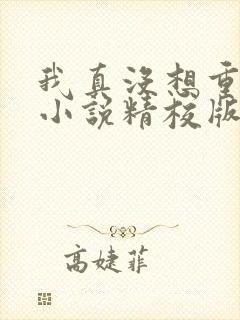 我真没想重
小说精校版
高婕菲